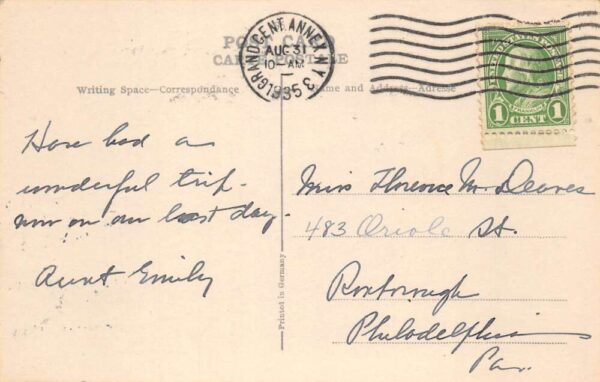 POST CARD
CARTE POSTALE
GRAND CENT. ANNEX. N.Y.
AUG 31
10-AM
1935
3
Writing Space—Correspondance
Name and Address—Adresse
UNITED STATES POSTAGE
FRANKLIN
1 CENT 1
Have had a
wonderful trip.
now on our last day.
Aunt Emily
Miss Florence M. Deaves
483 Oriole St.
Roxborough
Philadelphia
Pa.
Printed in Germany